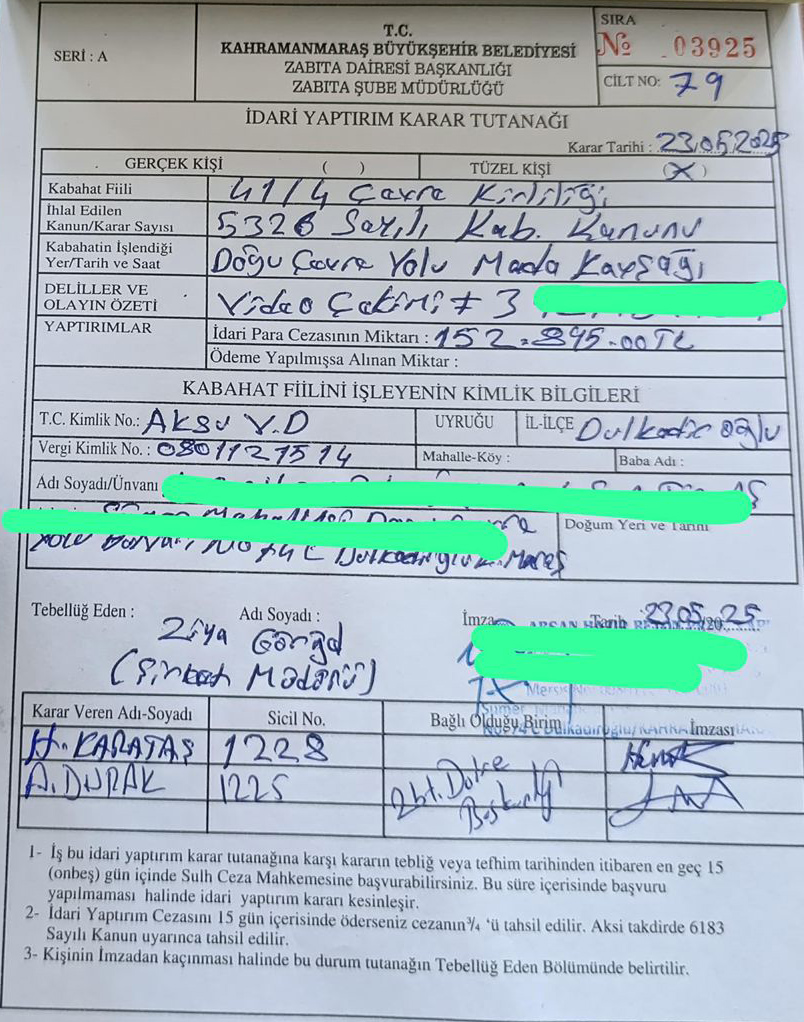 T.C.
KAHRAMANMARAŞ BÜYÜKŞEHİR BELEDİYESİ
ZABITA DAİRESİ BAŞKANLIĞI
ZABITA ŞUBE MÜDÜRLÜĞÜ
SERİ : A
SIRA
№ 03925
CİLT NO: 79
İDARİ YAPTIRIM KARAR TUTANAĞI
Karar Tarihi : 23.05.2025
GERÇEK KİŞİ ( ) TÜZEL KİŞİ (X)
Kabahat Fiili 41/4 Çevre Kirliliği
İhlal Edilen
Kanun/Karar Sayısı 5326 Sayılı Kab. Kanunu
Kabahatin İşlendiği
Yer/Tarih ve Saat Doğu Çevre Yolu Mada Kavşağı
DELİLLER VE
OLAYIN ÖZETİ Video Çekimi + 3
YAPTIRIMLAR
İdari Para Cezasının Miktarı : 152.895.00 TL
Ödeme Yapılmışsa Alınan Miktar :
KABAHAT FİİLİNİ İŞLEYENİN KİMLİK BİLGİLERİ
T.C. Kimlik No.: Aksu V.D UYRUĞU İL-İLÇE Dulkadiroğlu
Vergi Kimlik No. : 0801127514 Mahalle-Köy : Baba Adı :
Adı Soyadı/Ünvanı
Doğum Yeri ve Tarihi
No 74 C Dulkadiroğlu K.Maraş
Tebellüğ Eden : Adı Soyadı : İmza Tarih 23.05.25
Ziya
(Şirket Müdürü)
Karar Veren Adı-Soyadı Sicil No. Bağlı Olduğu Birim İmzası
H. KARATAŞ 1228
A. DURAK 1225
Zbt. Daire
Başkanlığı
1- İş bu idari yaptırım karar tutanağına karşı kararın tebliğ veya tefhim tarihinden itibaren en geç 15
(onbeş) gün içinde Sulh Ceza Mahkemesine başvurabilirsiniz. Bu süre içerisinde başvuru
yapılmaması halinde idari yaptırım kararı kesinleşir.
2- İdari Yaptırım Cezasını 15 gün içerisinde öderseniz cezanın ¾ 'ü tahsil edilir. Aksi takdirde 6183
Sayılı Kanun uyarınca tahsil edilir.
3- Kişinin İmzadan kaçınması halinde bu durum tutanağın Tebellüğ Eden Bölümünde belirtilir.